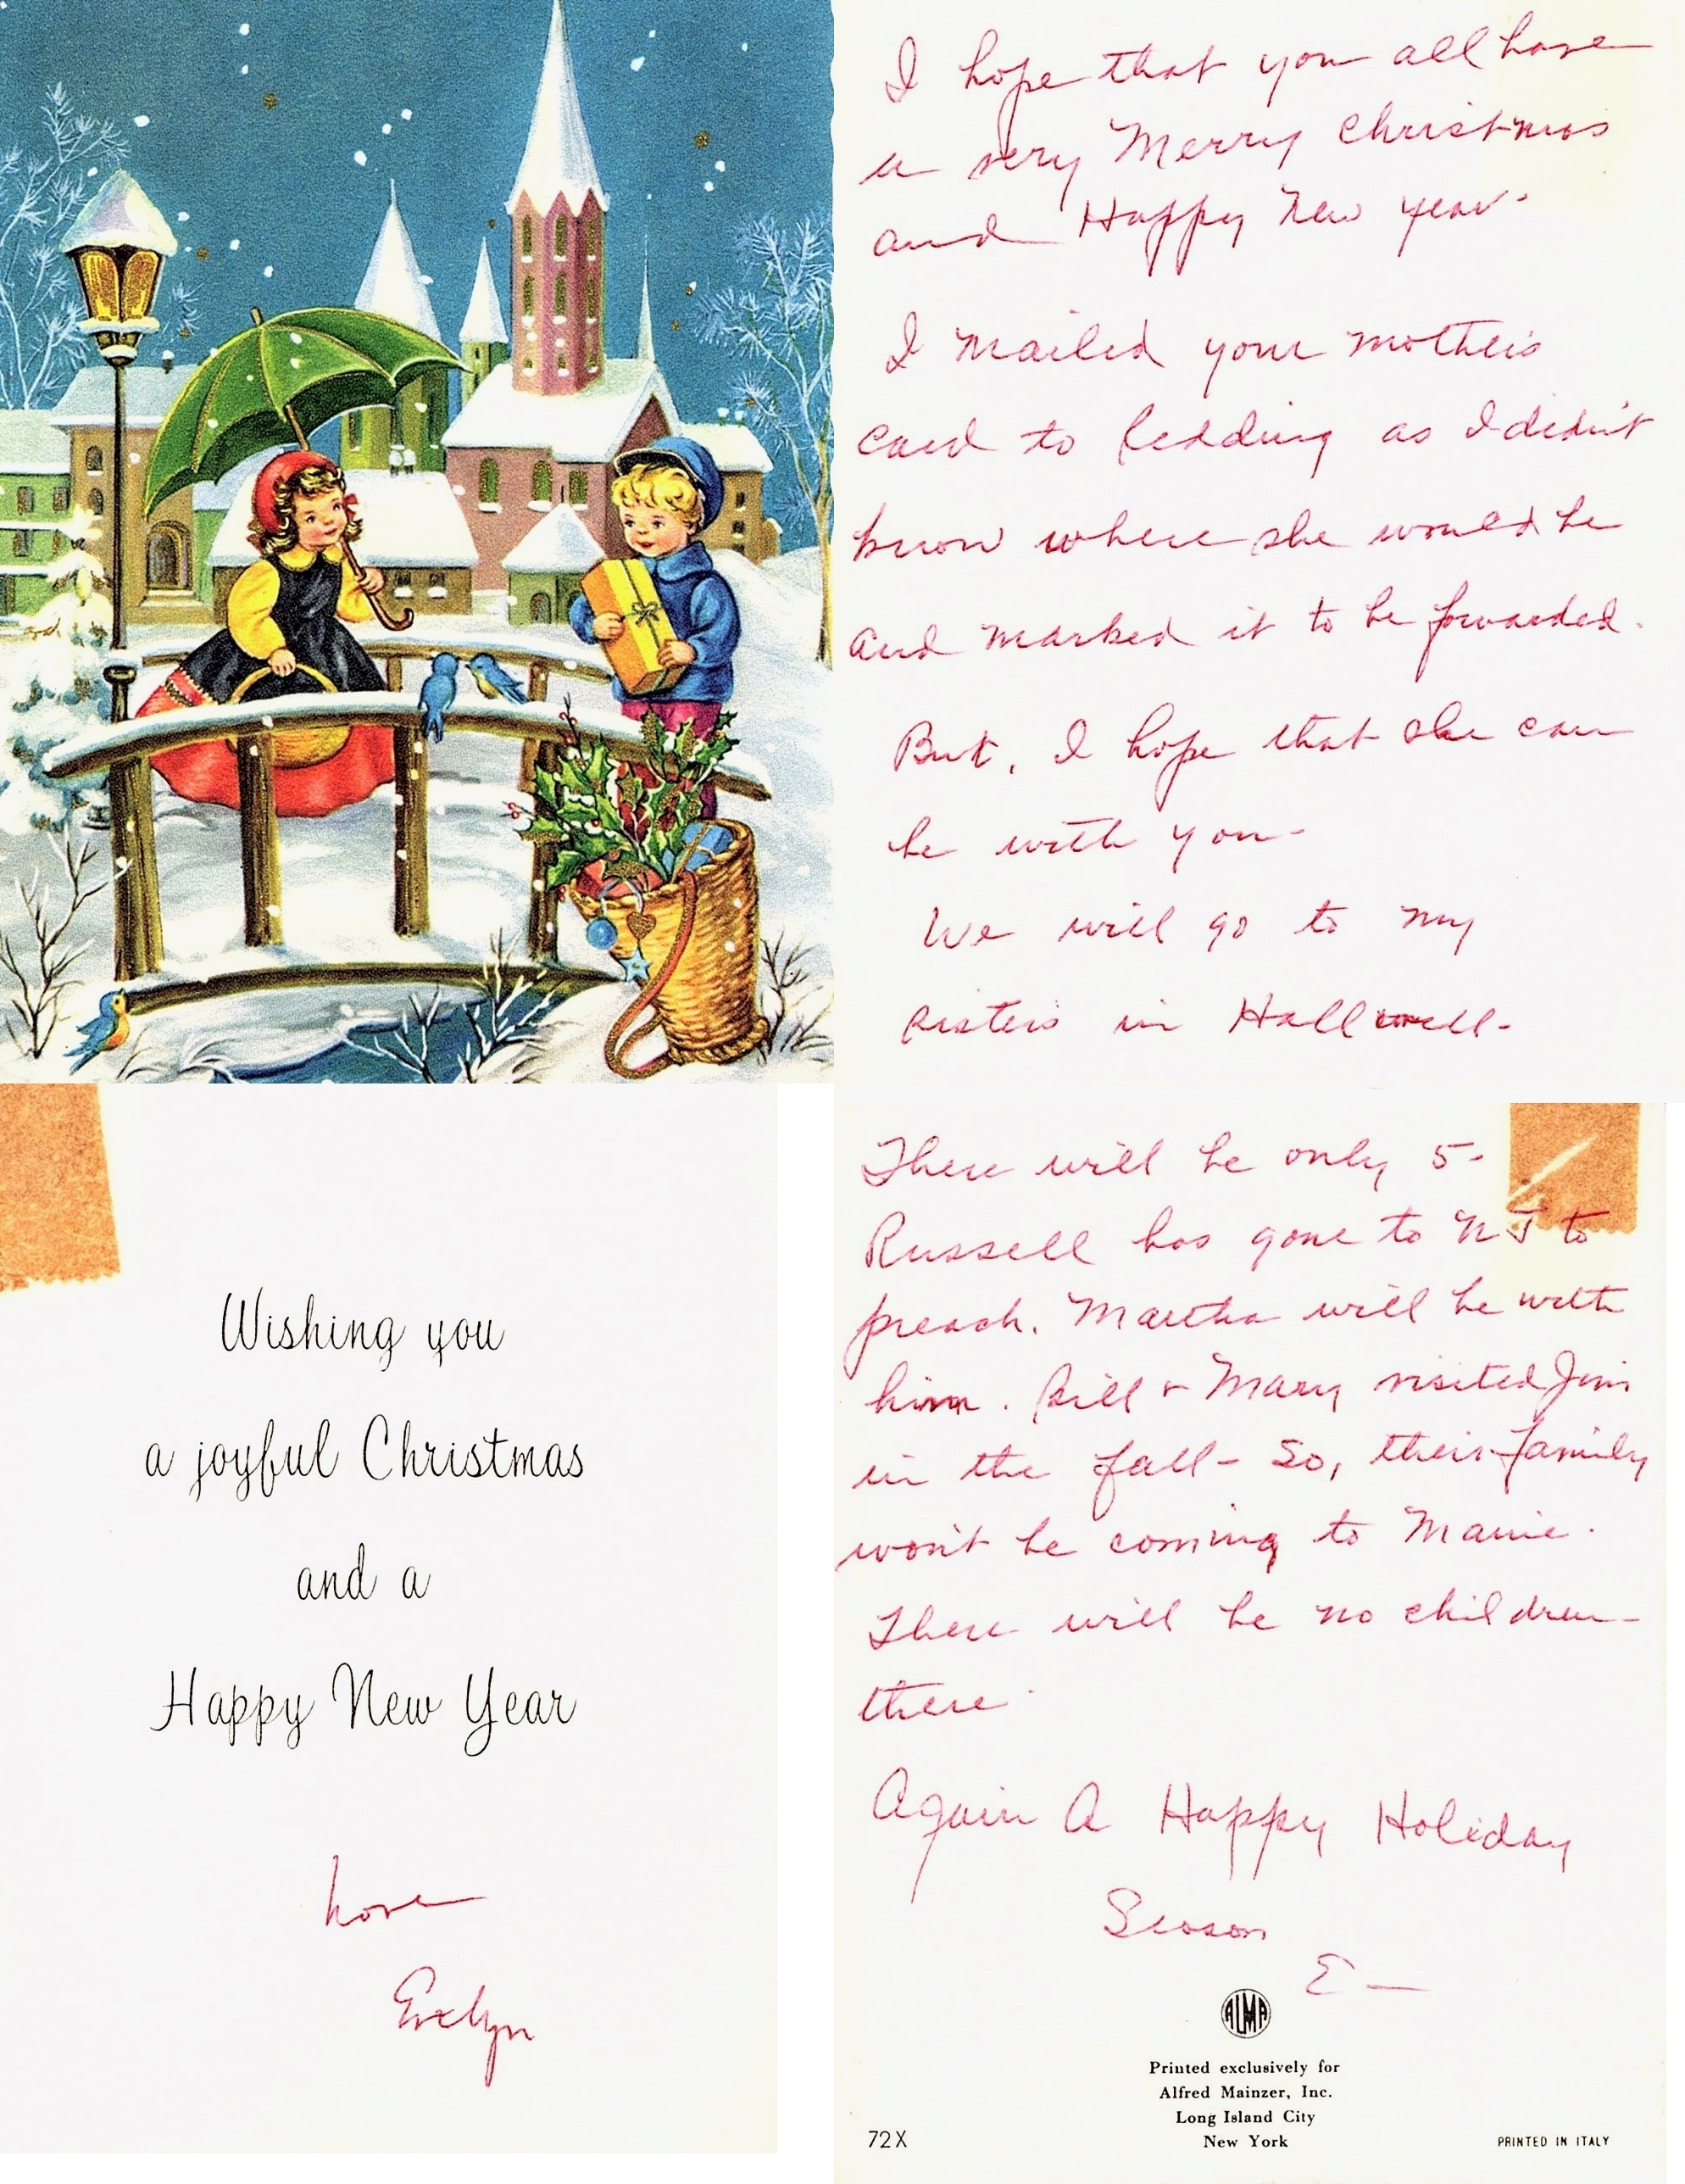 I hope that you all have
a very Merry Christmas
and Happy New Year.
I mailed your mother's
card to Redding as I didn't
know where she would be
and marked it to be forwarded.
But, I hope that she can
be with you -
We will go to my
sisters in Hallowell.
Wishing you
a joyful Christmas
and a
Happy New Year
Love
Evelyn
There will be only 5-
Russell has gone to NJ to
preach. Martha will be with
him. Bill + Mary visited Jim
in the fall - So, their family
won't be coming to Maine.
There will be no children
there.
Again A Happy Holiday
Season
E —
ALMA
Printed exclusively for
Alfred Mainzer, Inc.
Long Island City
New York
72X
PRINTED IN ITALY